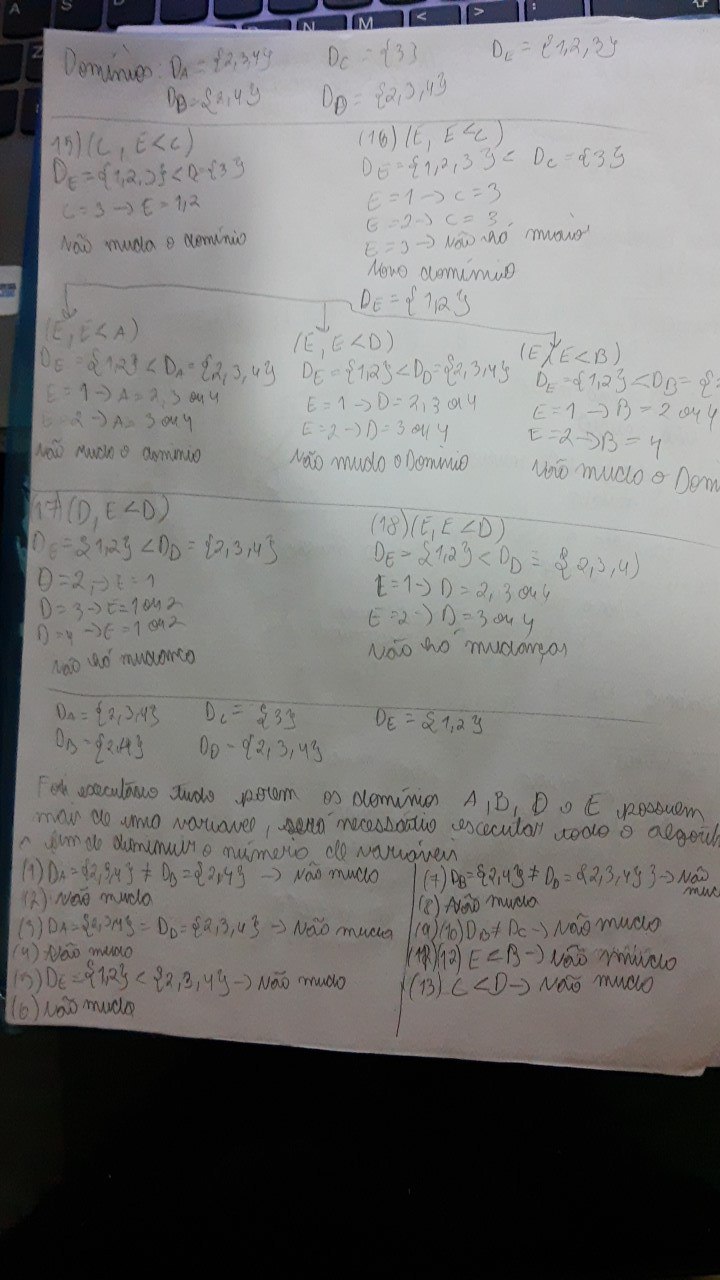 Domínios: DA = {2,3,4} DC = {3} DE = {1,2,3}
DB = {2,4} DD = {2,3,4}
15) (C, E<C)
DE = {1,2,3} < D = {3}
C = 3 → E = 1,2
Não muda o domínio
(16) (E, E<C)
DE = {1,2,3} < DC = {3}
E = 1 → C = 3
E = 2 → C = 3
E = 3 → Não há maior
Novo domínio
DE = {1,2}
(E, E<A)
DE = {1,2} < DA = {2,3,4}
E = 1 → A = 2, 3 ou 4
E = 2 → A = 3 ou 4
Não muda o domínio
(E, E<D)
DE = {1,2} < DD = {2,3,4}
E = 1 → D = 2, 3 ou 4
E = 2 → D = 3 ou 4
Não muda o Domínio
(E, E<B)
DE = {1,2} < DB = {
E = 1 → B = 2 ou 4
E = 2 → B = 4
Não muda o Dom
(17) (D, E<D)
DE = {1,2} < DD = {2,3,4}
D = 2, → E = 1
D = 3 → E = 1 ou 2
D = 4 → E = 1 ou 2
Não há mudança
(18) (E, E<D)
DE = {1,2} < DD = {2,3,4)
E = 1 → D = 2, 3 ou 4
E = 2 → D = 3 ou 4
Não há mudanças
DA = {2,3,4} DC = {3} DE = {1,2}
DB = {2,4} DD = {2,3,4}
Foi executário tudo porem os domínios A, B, D e E possuem
mais de uma variavel, será necessário executar todo o algorit
fim de diminuir o número de variáveis
(1) DA = {2,3,4} ≠ DB = {2,4} → Não muda
(2) Não muda
(3) DA = {2,3,4} = DD = {2,3,4} → Não muda
(4) Não muda
(5) DE = {1,2} < {2,3,4} → Não muda
(6) Não muda
(7) DB = {2,4} ≠ DD = {2,3,4} → Não
muda
(8) Não muda
(9) (10) DB ≠ DC → Não muda
(11) (12) E < B → Não muda
(13) C < D → Não muda